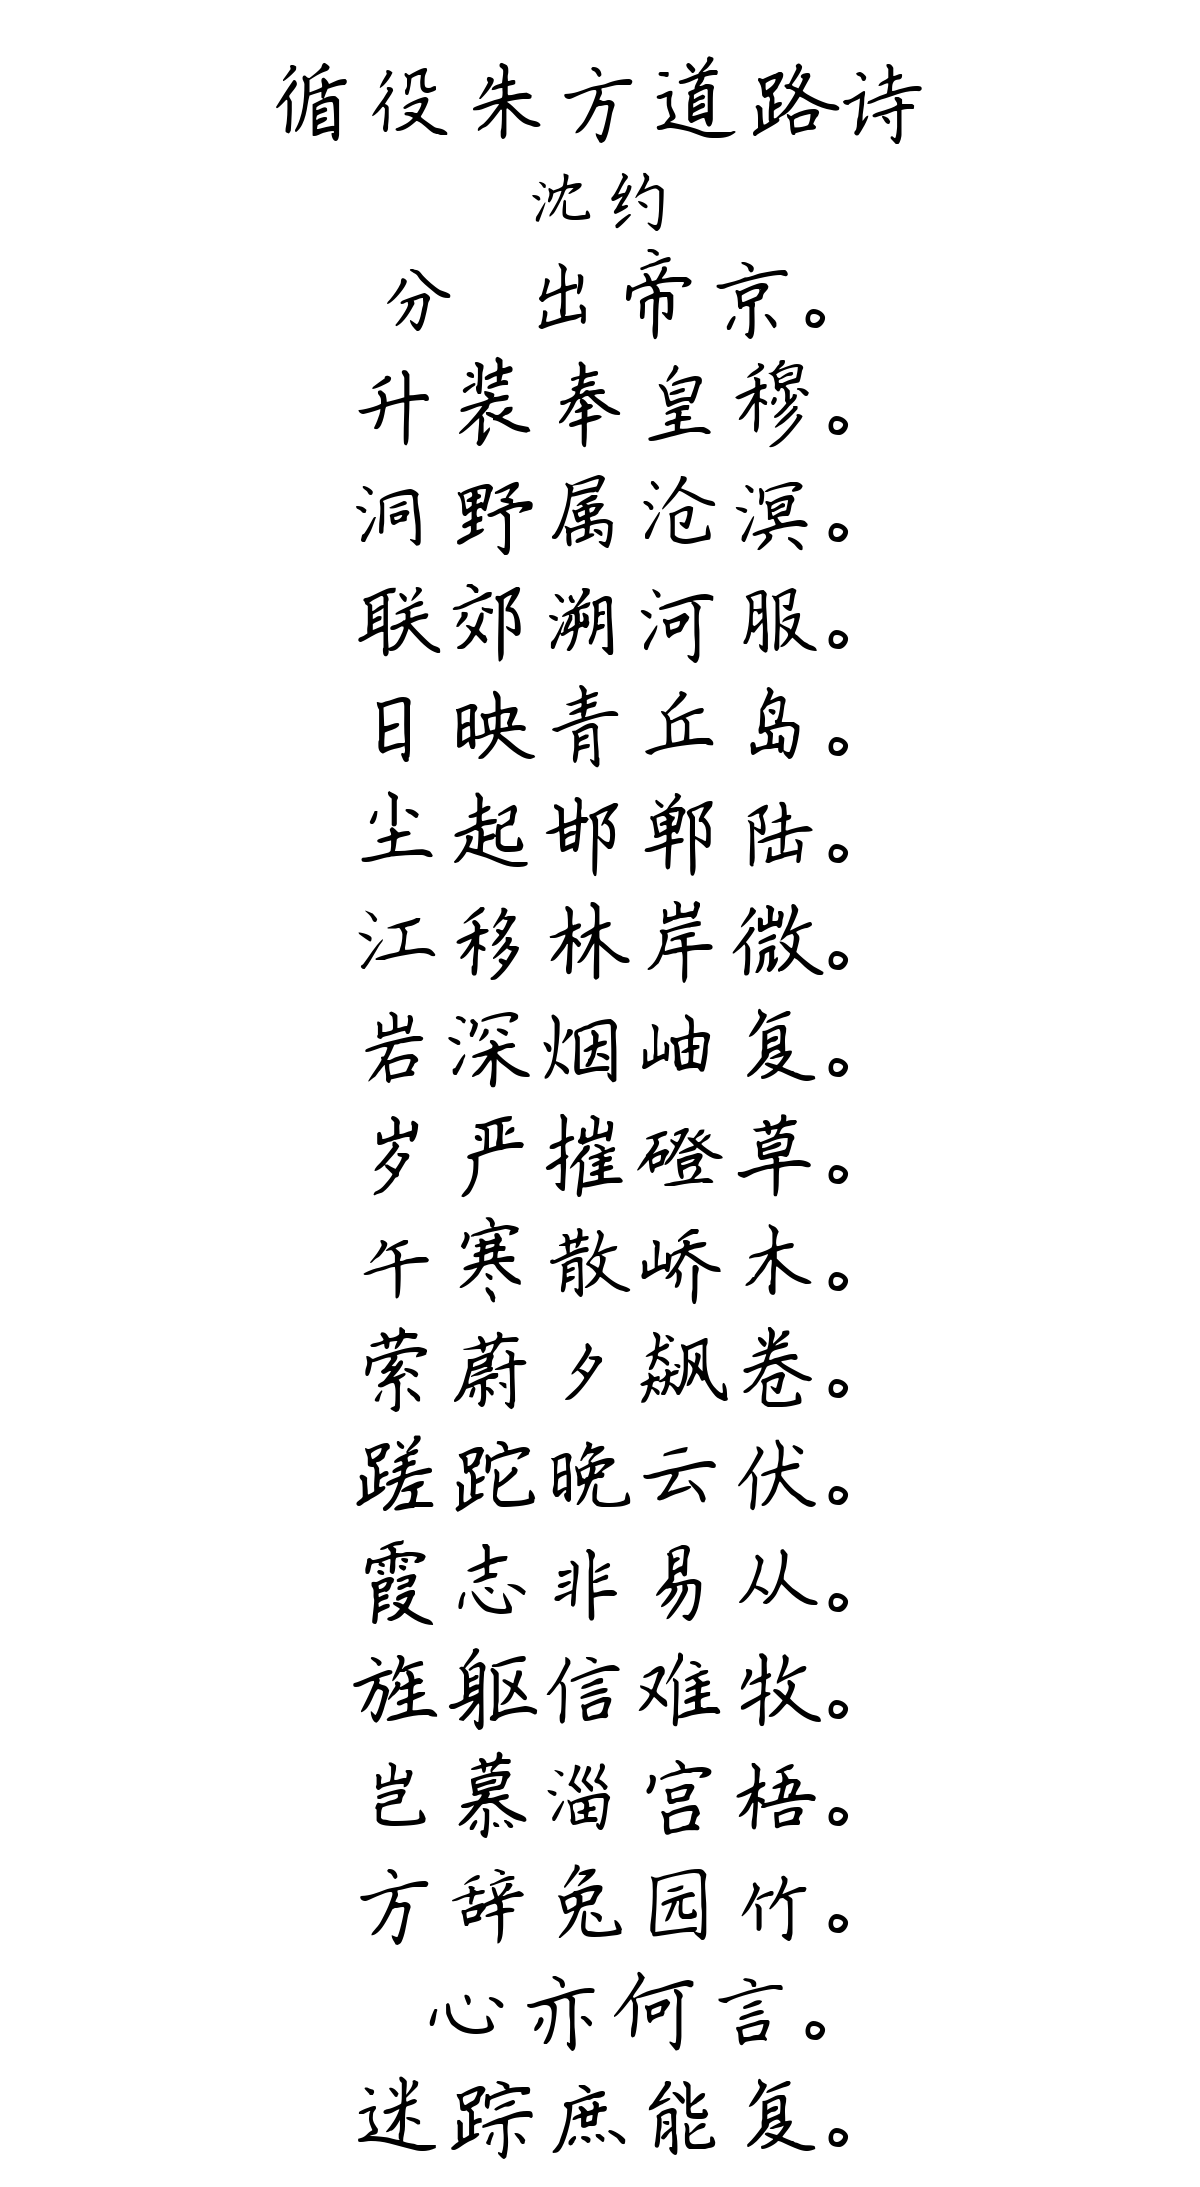 循役朱方道路诗
沈约
分 出帝京。
升装奉皇穆。
洞野属沧溟。
联郊溯河服。
日映青丘岛。
尘起邯郸陆。
江移林岸微。
岩深烟岫复。
岁严摧磴草。
午寒散峤木。
萦蔚夕飙卷。
蹉跎晚云伏。
霞志非易从。
旌躯信难牧。
岂慕淄宫梧。
方辞兔园竹。
心亦何言。
迷踪庶能复。